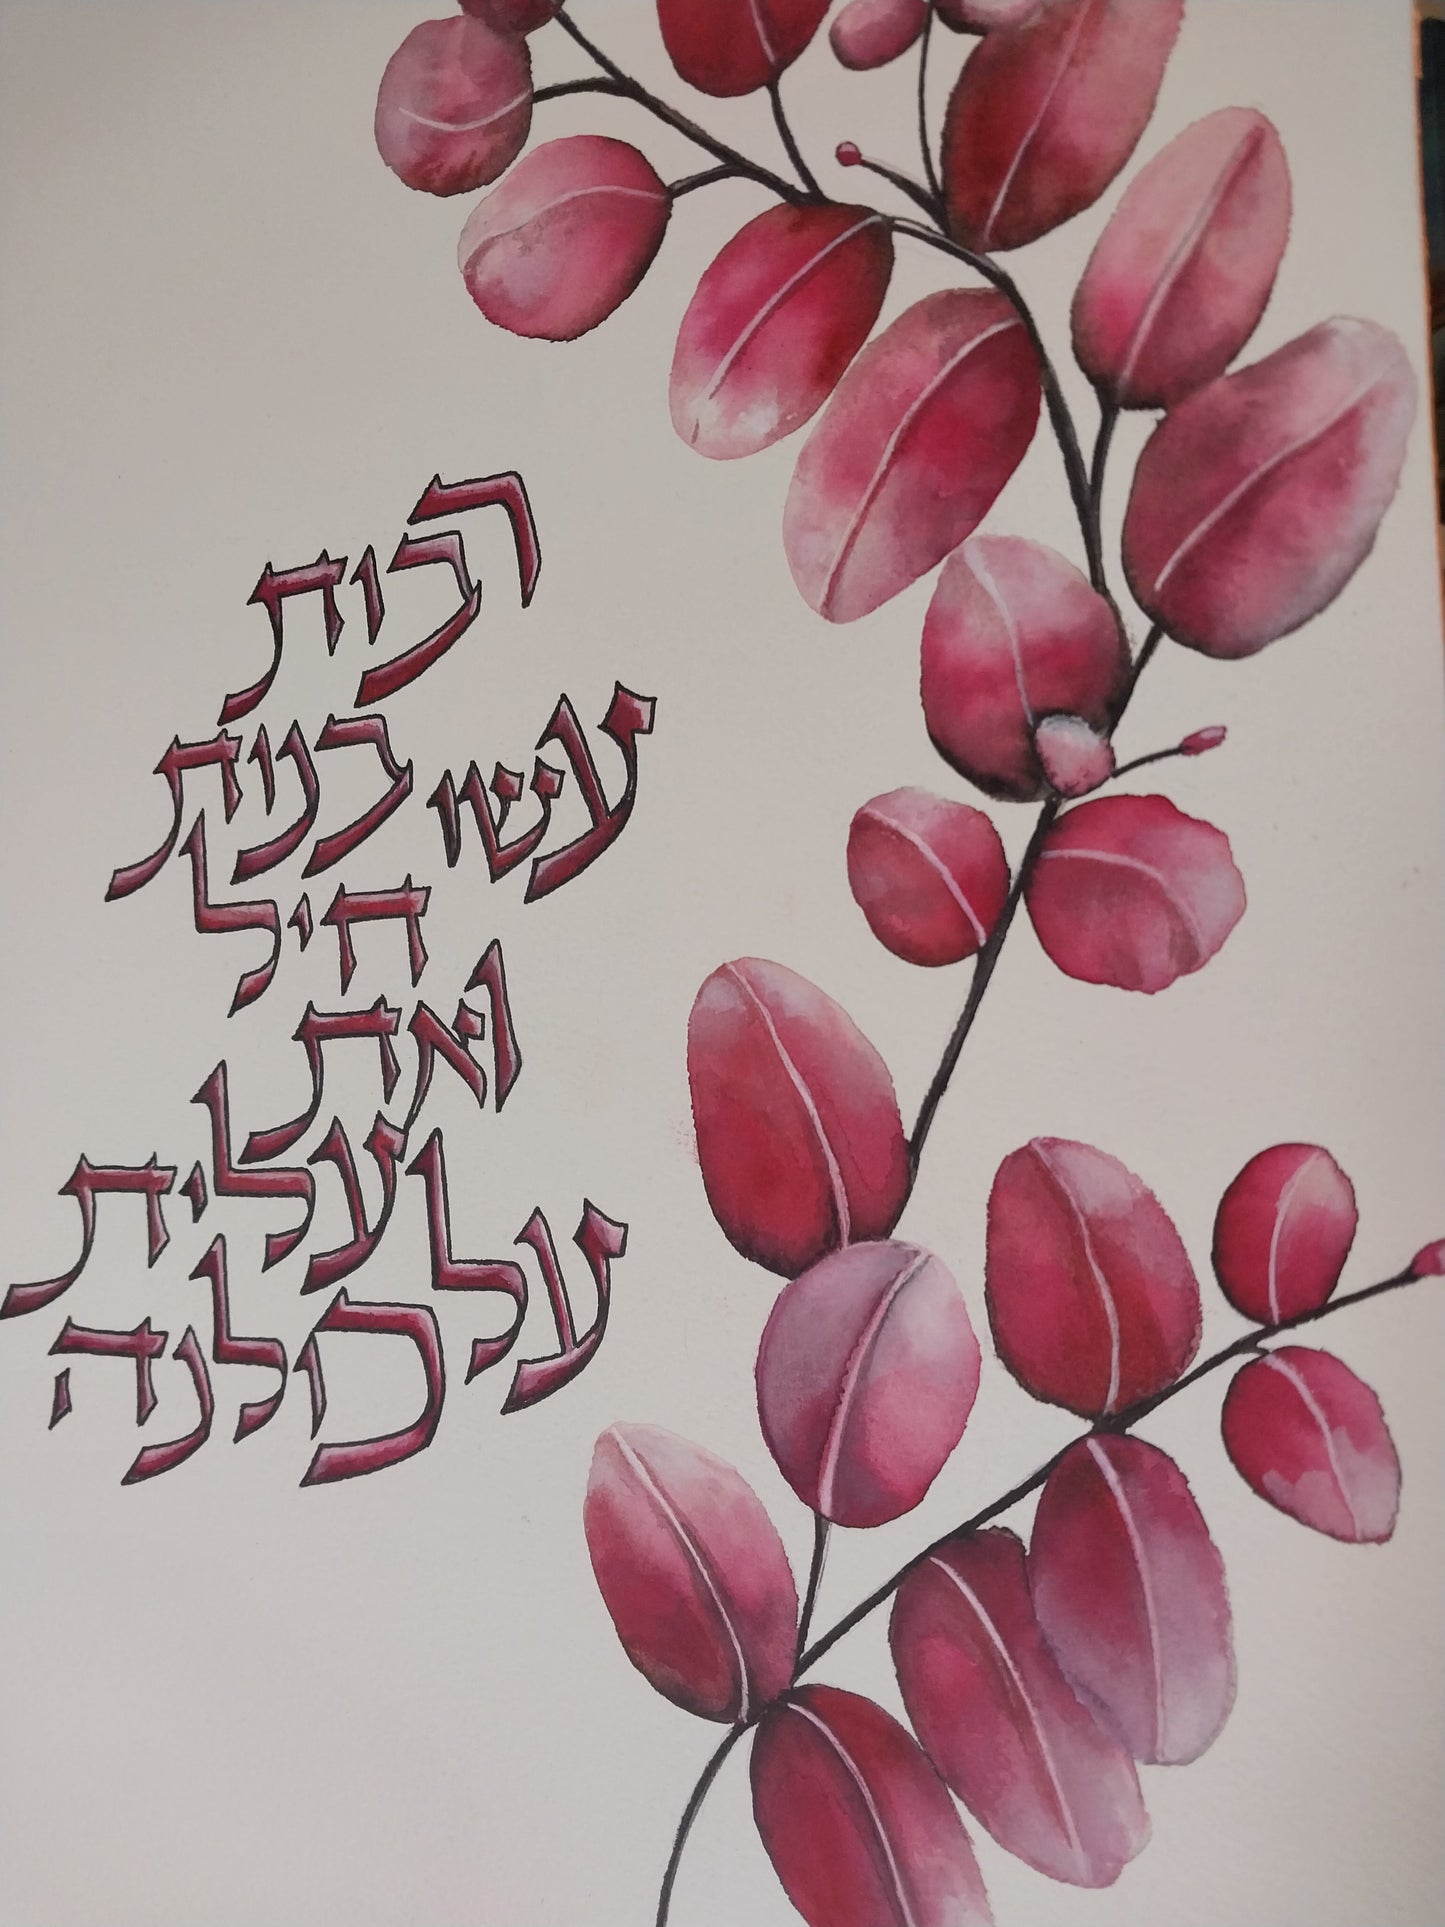 רבות
עשו בנות
חיל
ואת
עלית
על כולנה